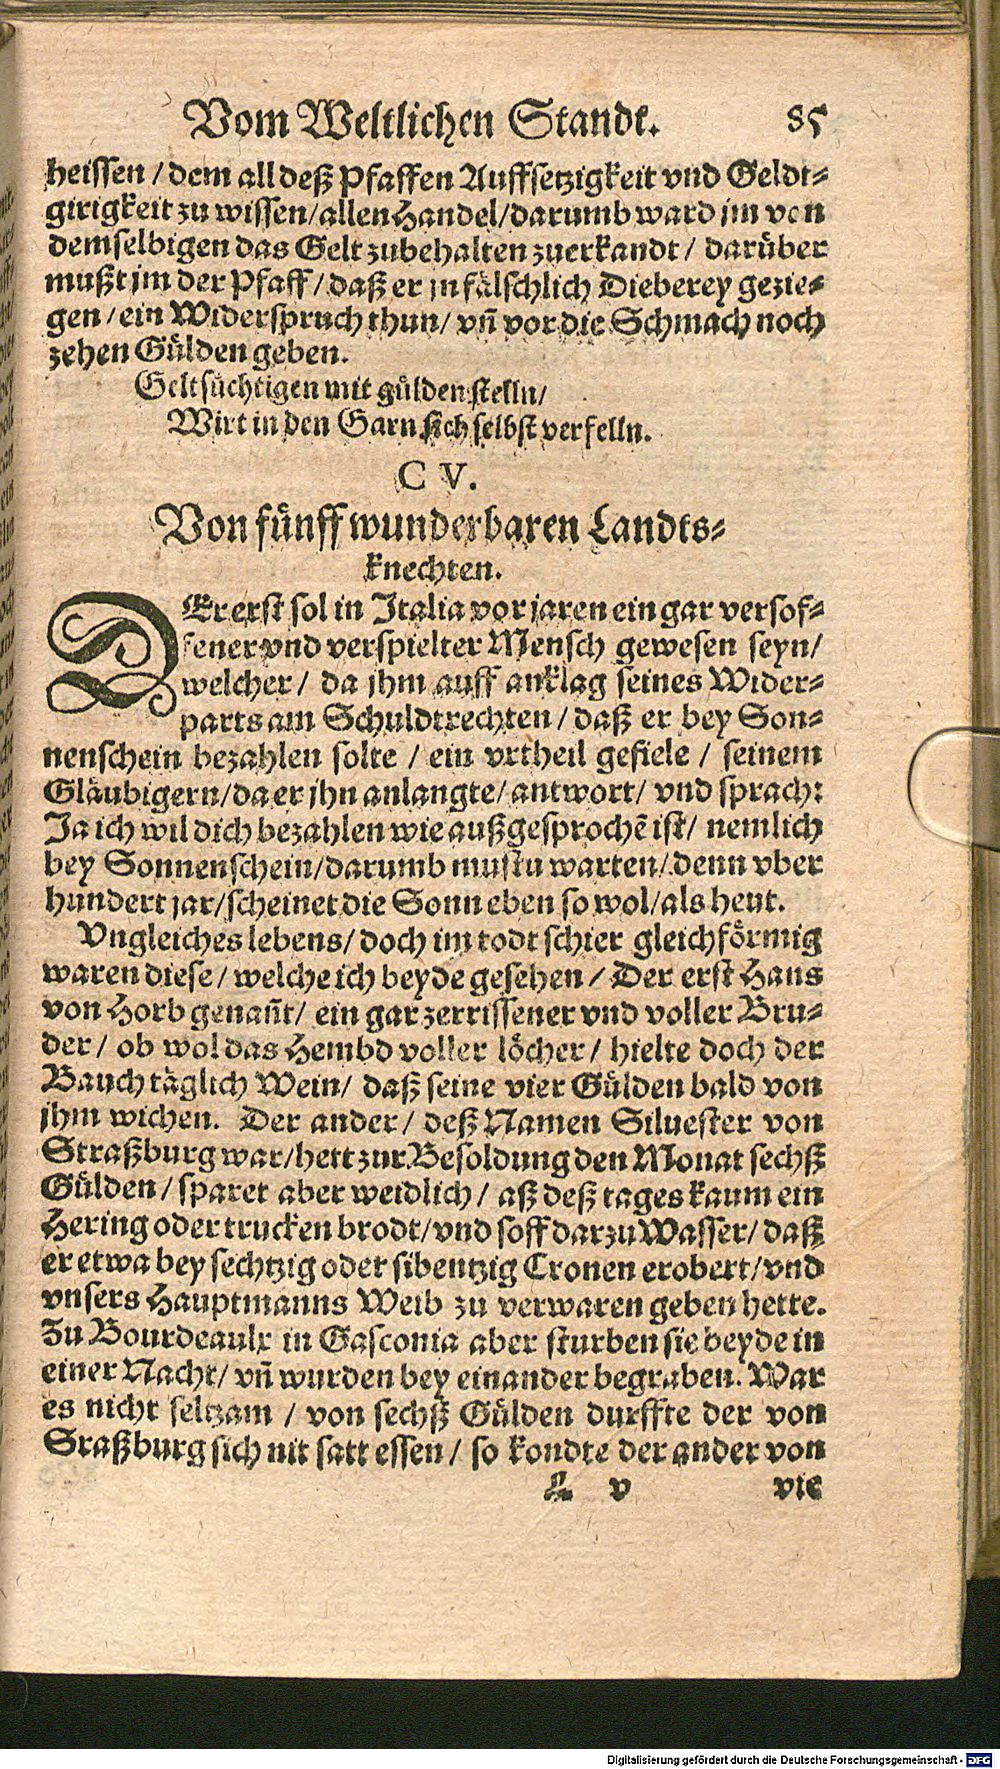 Vom Weltlichen Standt. 85
heissen / dem all deß Pfaffen Auffsetzigkeit vnd Geldt⸗
girigkeit zu wissen/allen Handel/darumb ward jm von
demselbigen das Gelt zubehalten zuerkandt / darüber
mußt jm der Pfaff / daß er jn fälschlich Dieberey gezie⸗
gen / ein Widerspruch thun/ vñ vor die Schmach noch
zehen Gülden geben.
Geltsüchtigen mit gülden stelln/
Wirt in den Garn sich selbst verfelln.
C V.
Von fünff wunderbaren Landts⸗
knechten.
DEr erst sol in Italia vor jaren ein gar versof⸗
fener vnd verspielter Mensch gewesen seyn/
welcher / da jhm auff anklag seines Wider⸗
parts am Schuldtrechten / daß er bey Son⸗
nenschein bezahlen solte / ein vrtheil gefiele / seinem
Gläubigern/da er jhn anlangte/ antwort/ vnd sprach:
Ja ich wil dich bezahlen wie außgesprochẽ ist/ nemlich
bey Sonnenschein/darumb mustu warten/ denn vber
hundert jar/scheinet die Sonn eben so wol/als heut.
Vngleiches lebens/ doch im todt schier gleichförmig
waren diese / welche ich beyde gesehen / Der erst Hans
von Horb genañt/ ein gar zerrissener vnd voller Bru⸗
der / ob wol das Hembd voller löcher / hielte doch der
Bauch täglich Wein/ daß seine vier Gülden bald von
jhm wichen. Der ander / deß Namen Siluester von
Straßburg war/hett zur Besoldung den Monat sechß
Gülden / sparet aber weidlich / aß deß tages kaum ein
Hering oder trucken brodt/vnd soff darzu Wasser/ daß
er etwa bey sechtzig oder sibentzig Cronen erobert/vnd
vnsers Hauptmanns Weib zu verwaren geben hette.
Zu Bourdeaulx in Gasconia aber sturben sie beyde in
einer Nacht/ vñ wurden bey einander begraben. War
es nicht seltzam / von sechß Gülden durffte der von
Sraßburg sich nit satt essen / so kondte der ander von
L v vie
Digitalisierung gefördert durch die Deutsche Forschungsgemeinschaft - DFG